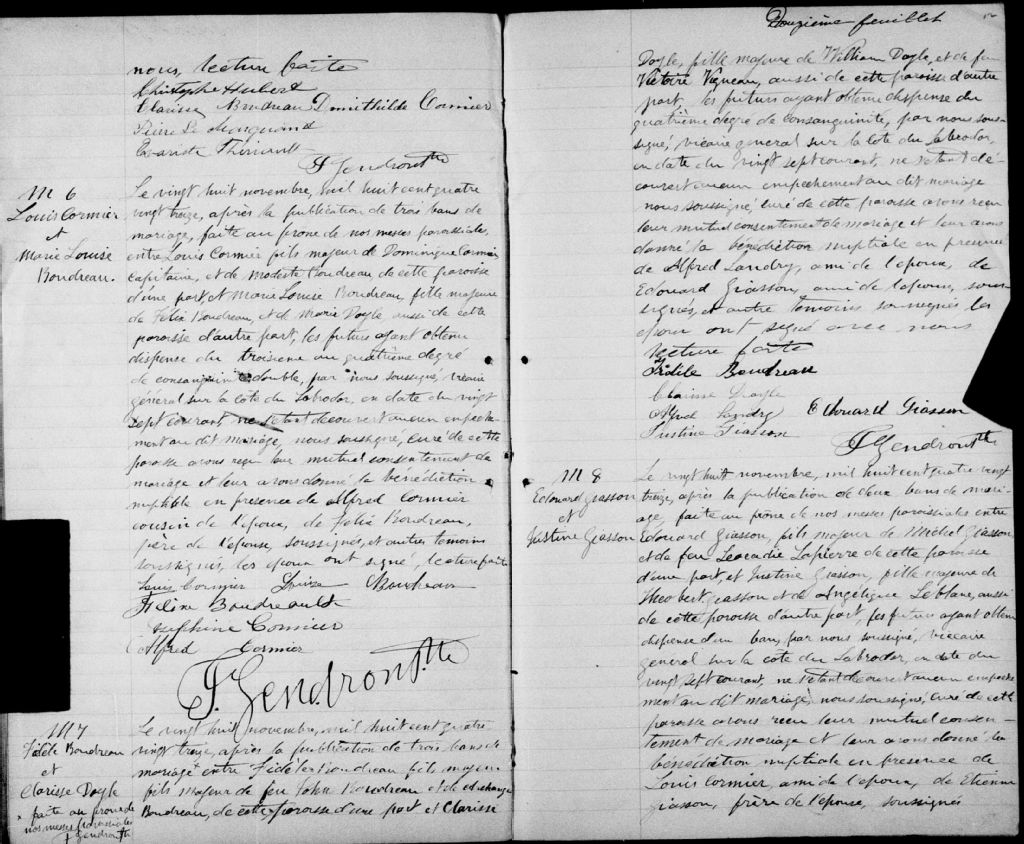 nous, lecture faite
Christophe Hubert
Clarisse Boudreau Domithilde Cormier
Evariste Thériault
F Gendron Ptre
M 6
Louis Cormier
et
Marie Louise
Boudreau.
Le vingt huit novembre, mil huit cent quatre
vingt treize, après la publication de trois bans de
mariage, faite au prône de nos messes paroissiales,
entre Louis Cormier fils majeur de Dominique Cormier
capitaine, et de Modeste Boudreau de cette paroisse
d'une part et Marie Louise Boudreau, fille majeure
de Félix Boudreau, et de Marie Doyle aussi de cette
paroisse d'autre part, les futurs ayant obtenu
dispense du troisieme au quatrième degré
de consanguinité double, par nous soussigné, vicaire
général sur la côte du Labrador, en date du vingt
sept courant, ne s'etant decouvert aucun empeche
ment au dit mariage, nous soussigné, curé de cette
paroisse avons reçu leur mutuel consentement de
mariage et leur avons donné la bénédiction
nuptiale en presence de Alfred Cormier
cousin de l'epoux, de Felix Boudreau,
père de l'epouse, soussignés, et autres temoins
soussignés, les epoux ont signé, lecture faite
Louis Cormier Louise Boudreau
Felix Boudreault
Delphine Cormier
Alfred Cormier
F. Gendron Ptre
M 7
Fidèle Boudreau
et
Clarisse Doyle
× faite au prone de
nos messes paroissiales
F Gendron Ptre
Le vingt huit novembre, mil huit cent quatre
vingt treize, après la publication de trois bans de
mariage × entre Fidèle Boudreau fils majeur
fils majeur de feu John Boudreau et de
Boudreau, de cette paroisse d'une part et Clarisse
Douzième feuillet
Doyle, fille majeure de William Doyle, et de feu
Victoire Vigneau, aussi de cette paroisse d'autre
part, les futurs ayant obtenu dispense du
quatrième degré de consanguinité, par nous sous-
signé, vicaire general sur la cote du Labrador,
en date du vingt sept courant, ne s'etant dé-
couvert aucun empechement au dit mariage
nous soussigné, curé de cette paroisse avons reçu
leur mutuel consentement de mariage et leur avons
donné la bénédiction nuptiale en presence
de Alfred Landry, ami de l'epoux, de
Edouard Giasson, ami de l'epoux, sous-
signés, et autre temoins soussignés les
epoux ont signé avec nous
lecture faite
Fidèle Boudreau
Clarisse Doyle
Alfred Landry Edouard Giasson
Justine Giasson
F Gendron Ptre
M 8
Edouard Giasson
et
Justine Giasson
Le vingt huit novembre, mil huit cent quatre vingt
treize, après la publication de deux bans de mari-
age, faite au prône de nos messes paroissiales entre
Edouard Giasson, fils majeur de Michel Giasson,
et de feu Leocadie Lapierre de cette paroisse
d'une part, et Justine Giasson, fille majeure de
Theobert Giasson et de Angelique Leblanc, aussi
de cette paroisse d'autre part, les futurs ayant obtenu
dispense d'un ban, par nous soussigné, vicaire
general sur la cote du Labrador, en date du
vingt sept courant, ne s'etant decouvert aucun empeche
ment au dit mariage, nous soussigné, curé de cette
paroisse avons reçu leur mutuel consen-
tement de mariage et leur avons donné la
bénédiction nuptiale en presence de
Louis Cormier, ami de l'epoux, de Etienne
Giasson, frère de l'epouse, soussignés